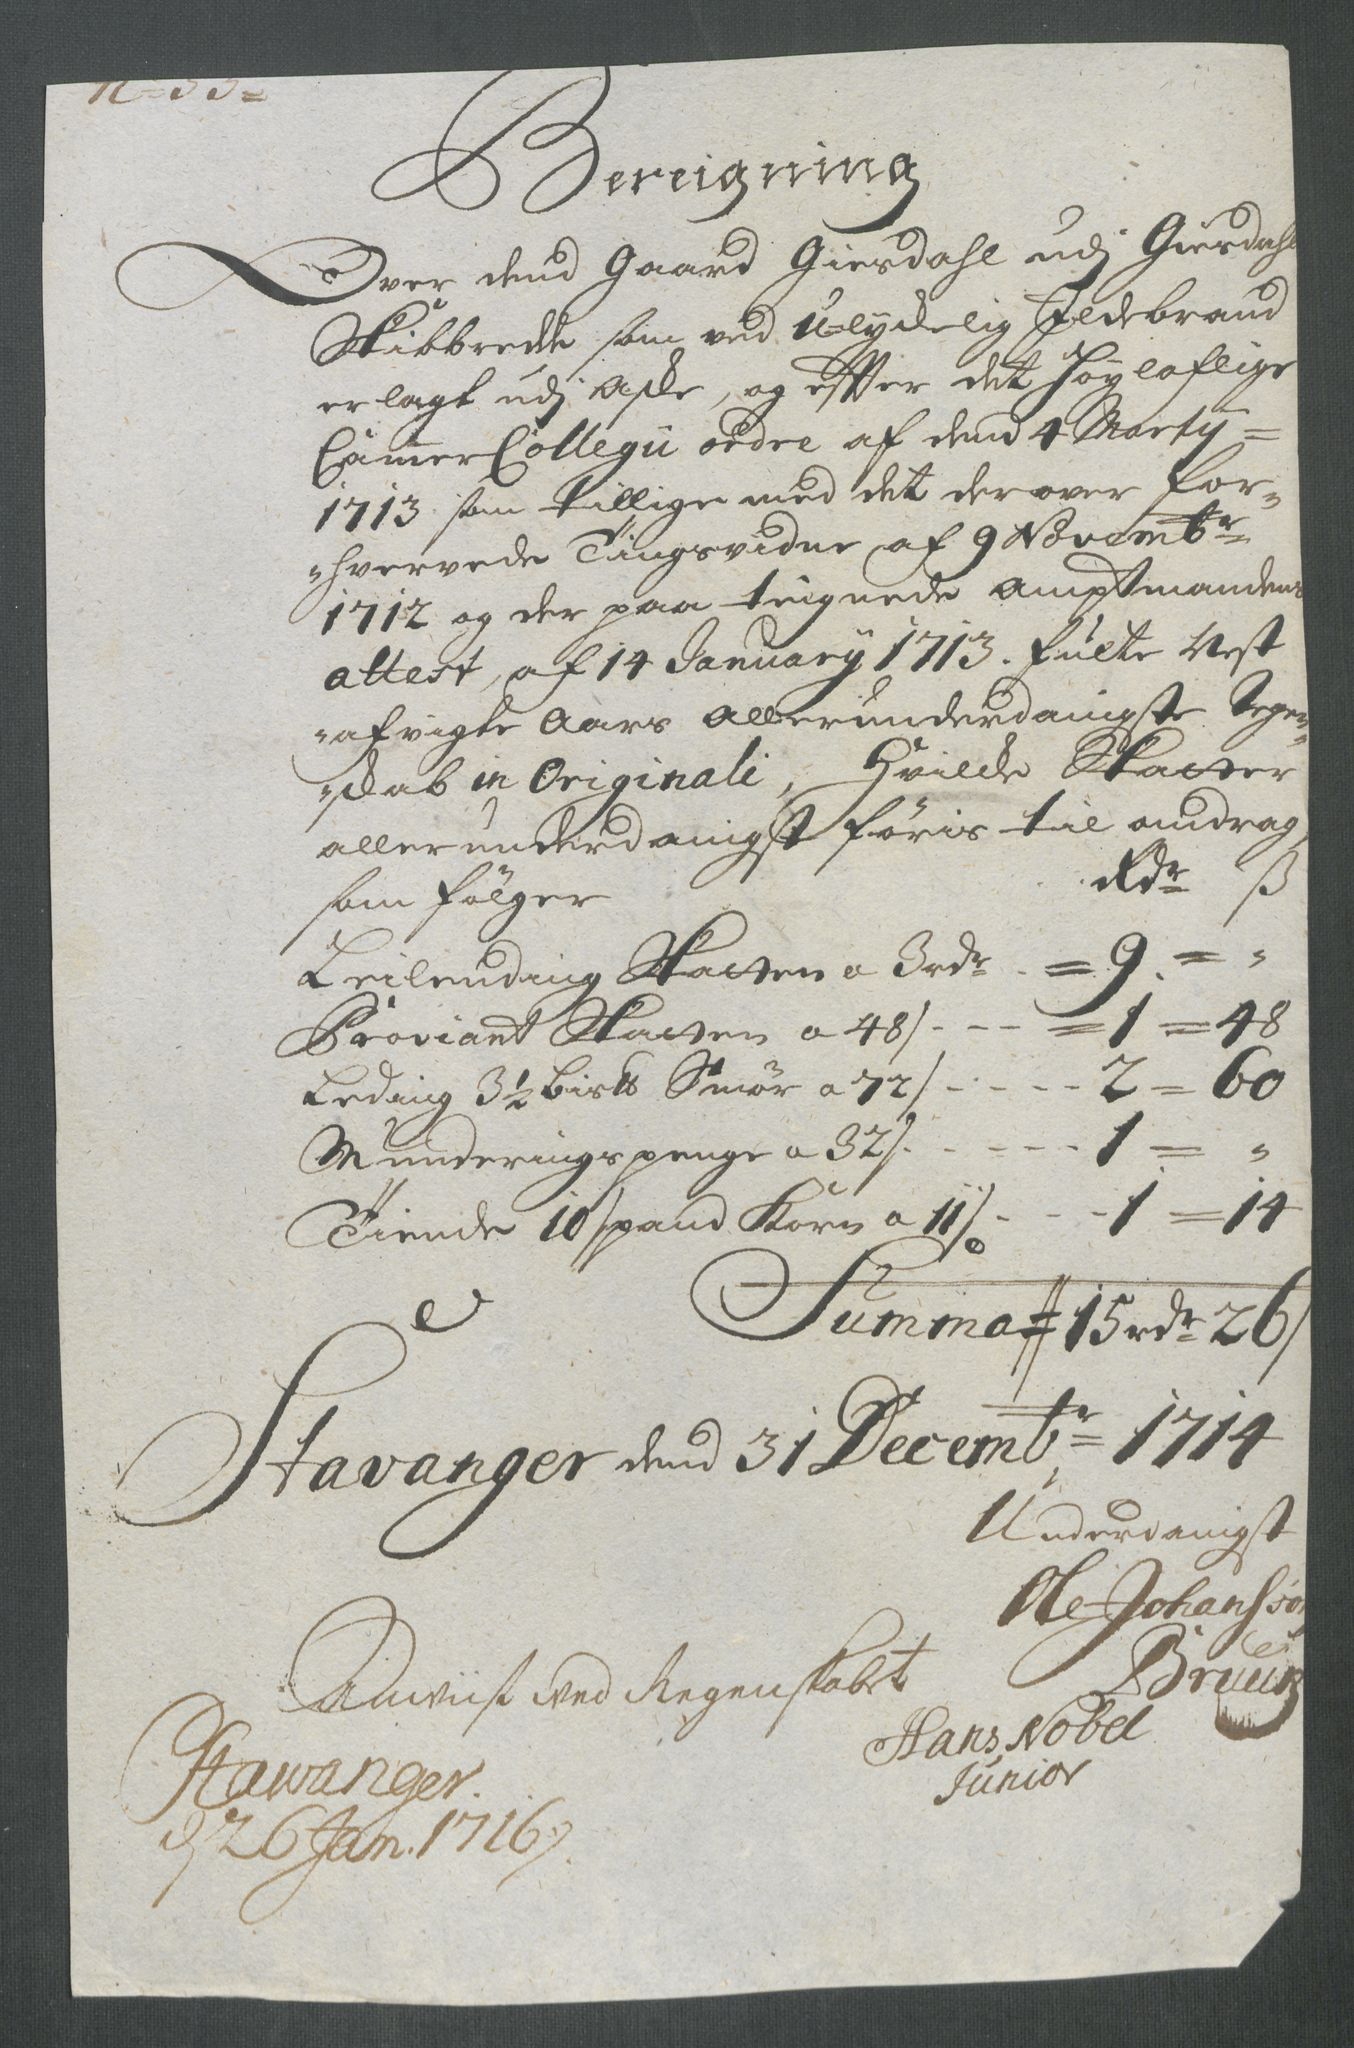 N=33=
Bereigning
Over dend Gaard Giesdahl udj Giesdahl
Skibbrede som ved Ulyckelig Ildebrand
er lagt udj Aske, og effter det Höyloflige
Cammer Collegii ordre af dend 4 Marty=
1713 som tillige med det derover for-
=hvervede Tingsvidne af 9 Novembr
1712 og der paa teignede Amptmandens
attest, af 14 January 1713. fulte Nest
=afvigte Aars allerunderdanigste Regen=
=skab in Originali, Hvilcke Skatter
allerunderdanigst föris til omdrag,
som fölger Rdr ß
Leilending Skatten a 3 rdr. = 9. = "
Proviant Skatten a 48/ --- = 1 = 48
Leding 3½ Bis℔ Smör a 72/ ----- 2 = 60
Munderingspenge a 32/ ----- 1 = "
Tiende 10 spand Korn a 11/ --- 1 = 14
Summa 15 rdr 26/
Stavanger dend 31 Decembr= 1714
Underdanigst
Ole Johansson
Bruun
Anviist ved Regenskabet
Hans Nobel
Junior
Stawanger.
d 26 Jan. 1716